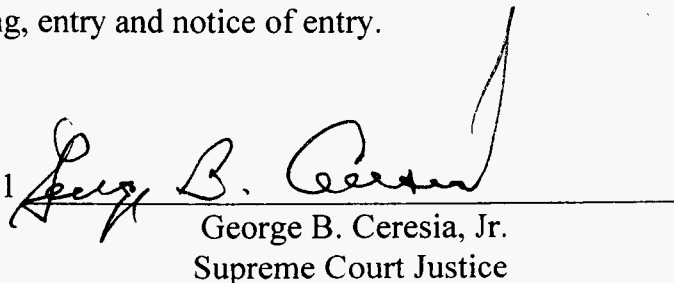 g, entry and notice of entry.
1 George B. Ceresia
George B. Ceresia, Jr.
Supreme Court Justice